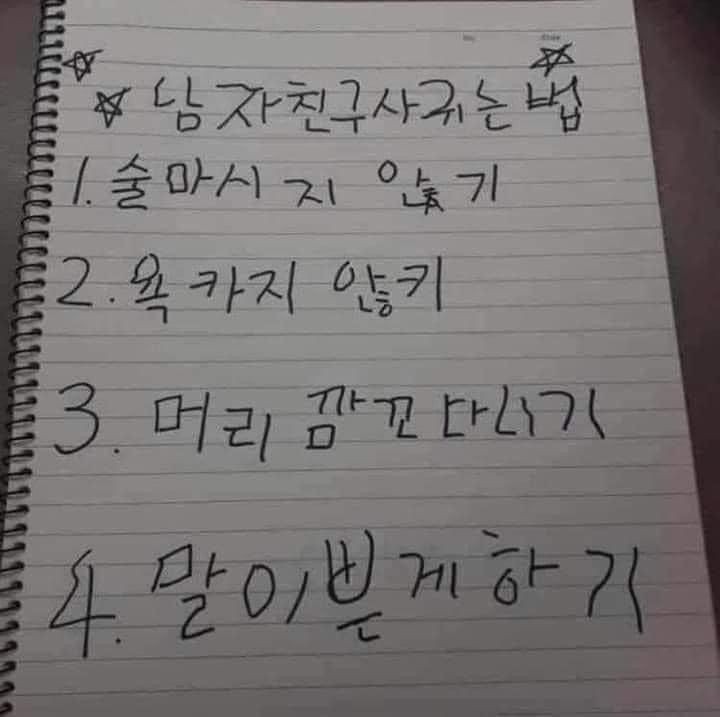 ☆ ☆
☆ 남자친구사귀는 법
1. 술마시지 않기
2. 욕카지 안킈
3. 머리 깜꼬 다니기
4. 말이쁜게하기